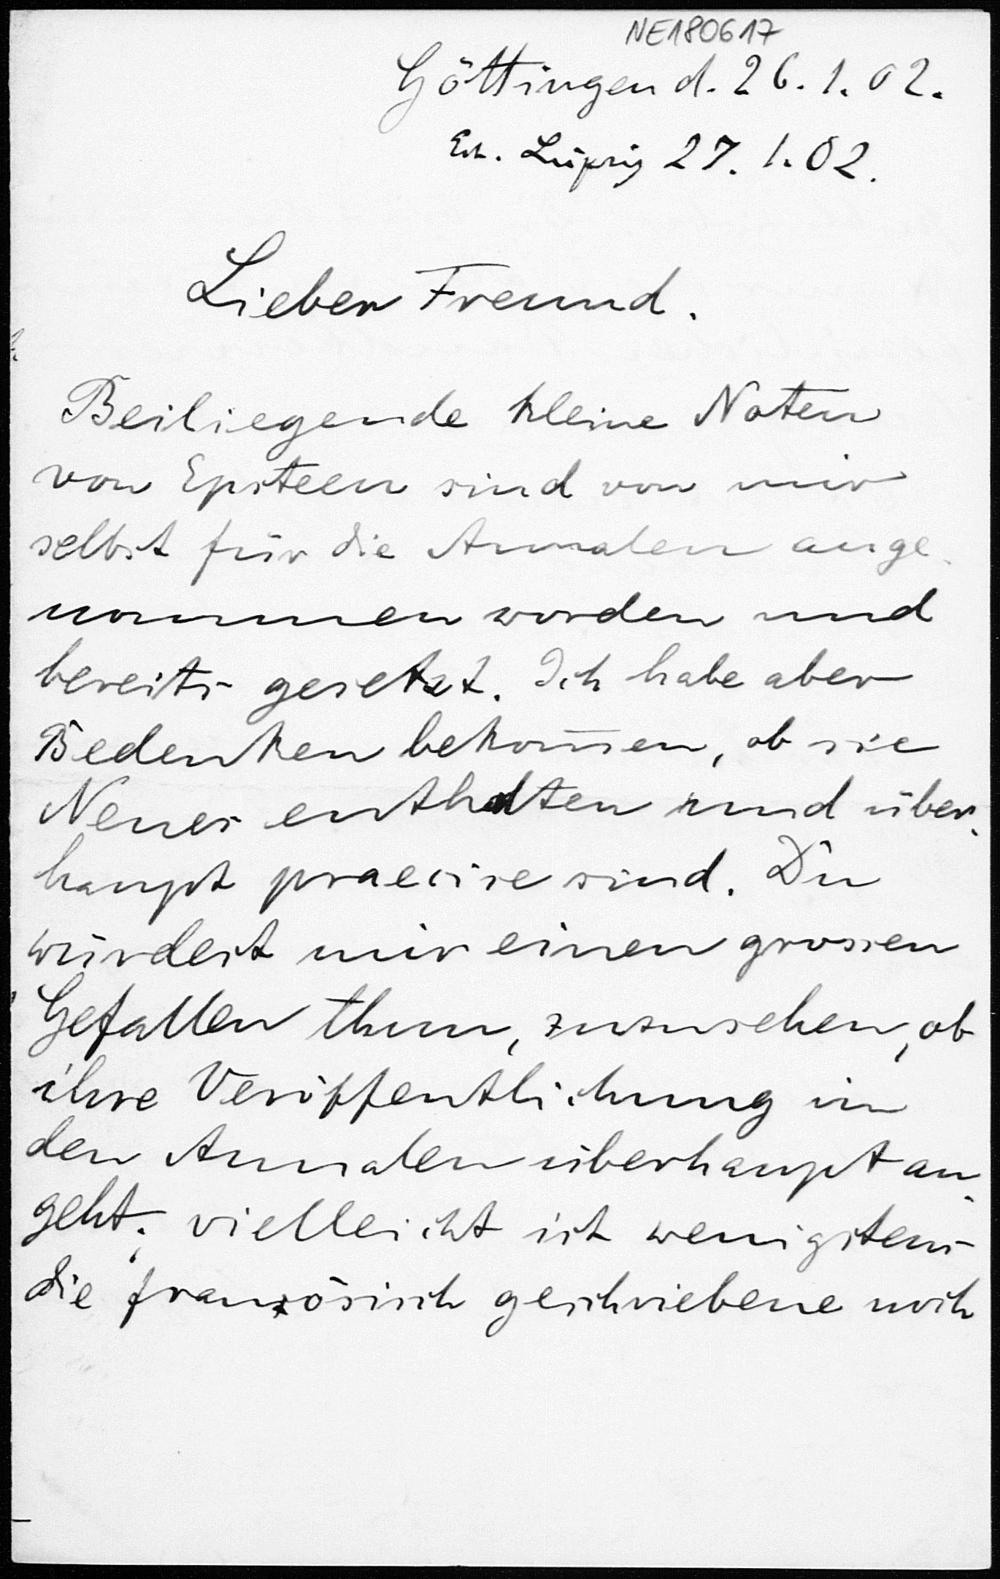 NE180617
Göttingen d. 26. 1. 02.
Erh. Leipzig 27. 1. 02.
Lieber Freund.
Beiliegende kleine Noten
von Epsteen sind von mir
selbst für die Annalen ange-
nommen worden und
bereits gesetzt. Ich habe aber
Bedenken bekom̅en, ob sie
Neues enthalten und über-
haupt praecise sind. Du
würdest mir einen grossen
Gefallen thun, zuzusehen, ob
ihre Veröffentlichung in
den Annalen überhaupt an-
geht; vielleicht ist wenigstens
die französisch geschriebene noch